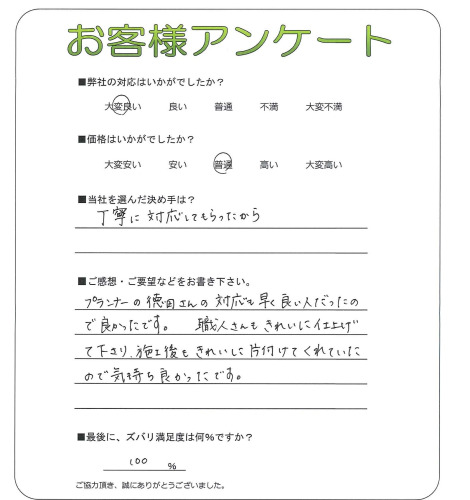 お客様アンケート
■弊社の対応はいかがでしたか？
大変良い 良い 普通 不満 大変不満
■価格はいかがでしたか？
大変安い 安い 普通 高い 大変高い
■当社を選んだ決め手は？
丁寧に対応してもらったから
■ご感想・ご要望などをお書き下さい。
プランナーの徳田さんの対応も早く良い人だったの
で良かったです。 職人さんもきれいに仕上げ
て下さり、施工後もきれいに片付けてくれていた
ので気持ち良かったです。
■最後に、ズバリ満足度は何%ですか？
100 %
ご協力頂き、誠にありがとうございました。